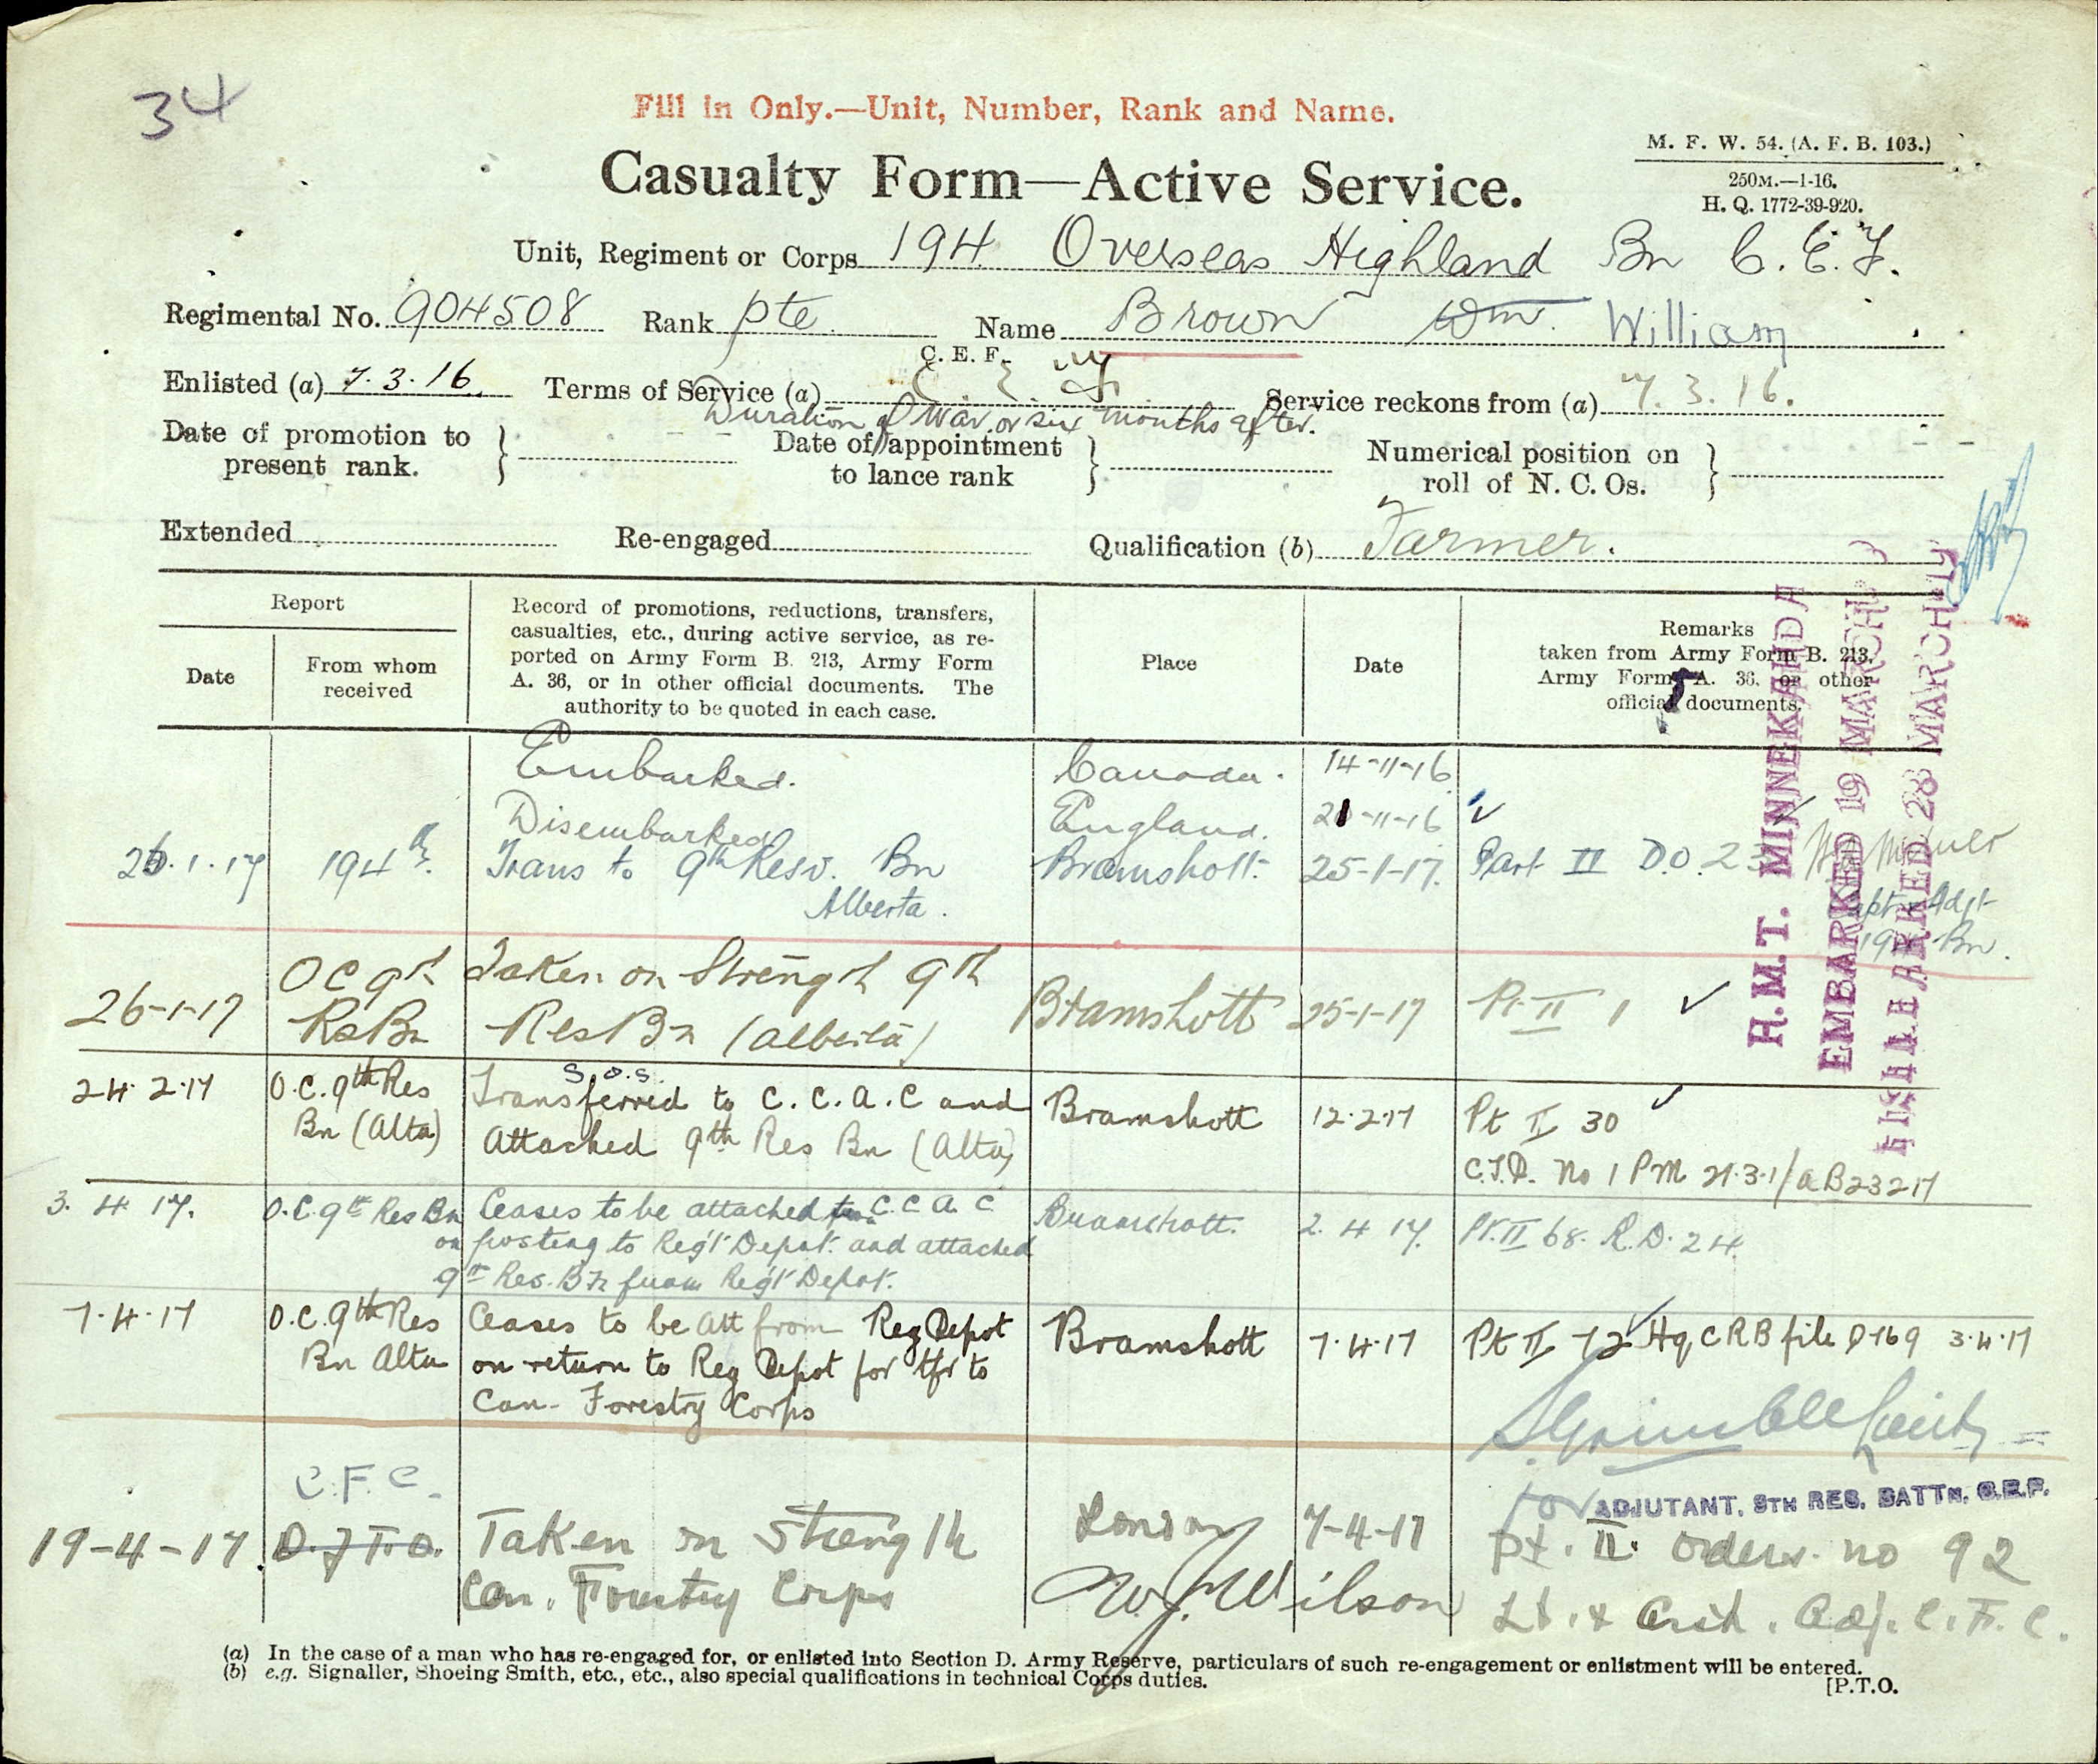 34
Fill in Only.—Unit, Number, Rank and Name.
M. F. W. 54. (A. F. B. 103.)
250M.—1-16.
H. Q. 1772-39-920.
Casualty Form—Active Service.
Unit, Regiment or Corps 194 Overseas Highland Bn C. E. F.
Regimental No. 904508 Rank Pte Name Brown Wm. William
C. E. F.
Enlisted (a) 7.3.16. Terms of Service (a) Service reckons from (a) 7.3.16.
Duration of War, or six months after.
Date of promotion to present rank. } Date of appointment to lance rank } Numerical position on roll of N. C. Os. }
Extended Re-engaged Qualification (b) Farmer.
Report
Date
From whom received
Record of promotions, reductions, transfers,
casualties, etc., during active service, as re-
ported on Army Form B. 213, Army Form
A. 36, or in other official documents. The
authority to be quoted in each case.
Place
Date
Remarks
taken from Army Form B. 213,
Army Form A. 36. or other
official documents.
Embarked. Canada. 14-11-16
Disembarked England. 21-11-16
26.1.17 194th Trans to 9th Resv. Bn Bramshott. 25-1-17. Part II D.O. 2
Alberta.
Capt & Adjt
194 Bn.
26-1-17 OC 9th Taken on Strength 9th Bramshott 25-1-17 Pt II 1
Res Bn Res Bn (Alberta)
S.O.S.
24.2.17 O.C. 9th Res Transferred to C.C.A.C and Bramshott 12.2.17 Pt II 30
Bn (Alta) Attached 9th Res Bn (Alta)
C.T.D. No 1 PM 21.3.1/a B23217
3.4.17. O.C. 9th Res Bn Ceases to be attached C.C.A.C Bramshott. 2.4.17. Pt. II 68. R.D. 24.
on posting to Reg'l Depot. and attached
9th Res. Bn from Reg'l Depot.
7.4.17 O.C. 9th Res Ceases to be att from Reg Depot Bramshott 7.4.17 Pt II 72 Hq CRB file D 169 3.4.17
Bn Alta on return to Reg Depot for tfr to
Can. Forestry Corps
for ADJUTANT, 9TH RES. BATTN. C.E.F.
C.F.C.
19-4-17. Taken on Strength London 7-4-17 Pt. II. Orders no 92
Can. Forestry Corps W.J. Wilson Lt. & Asst. Adj. C.F.C.
H.M.T. MINNEKAHDA
EMBARKED 19 MARCH
DISEMBARKED 28 MARCH 19
(a) In the case of a man who has re-engaged for, or enlisted into Section D. Army Reserve, particulars of such re-engagement or enlistment will be entered.
(b) e.g. Signaller, Shoeing Smith, etc., etc., also special qualifications in technical Corps duties.
[P.T.O.